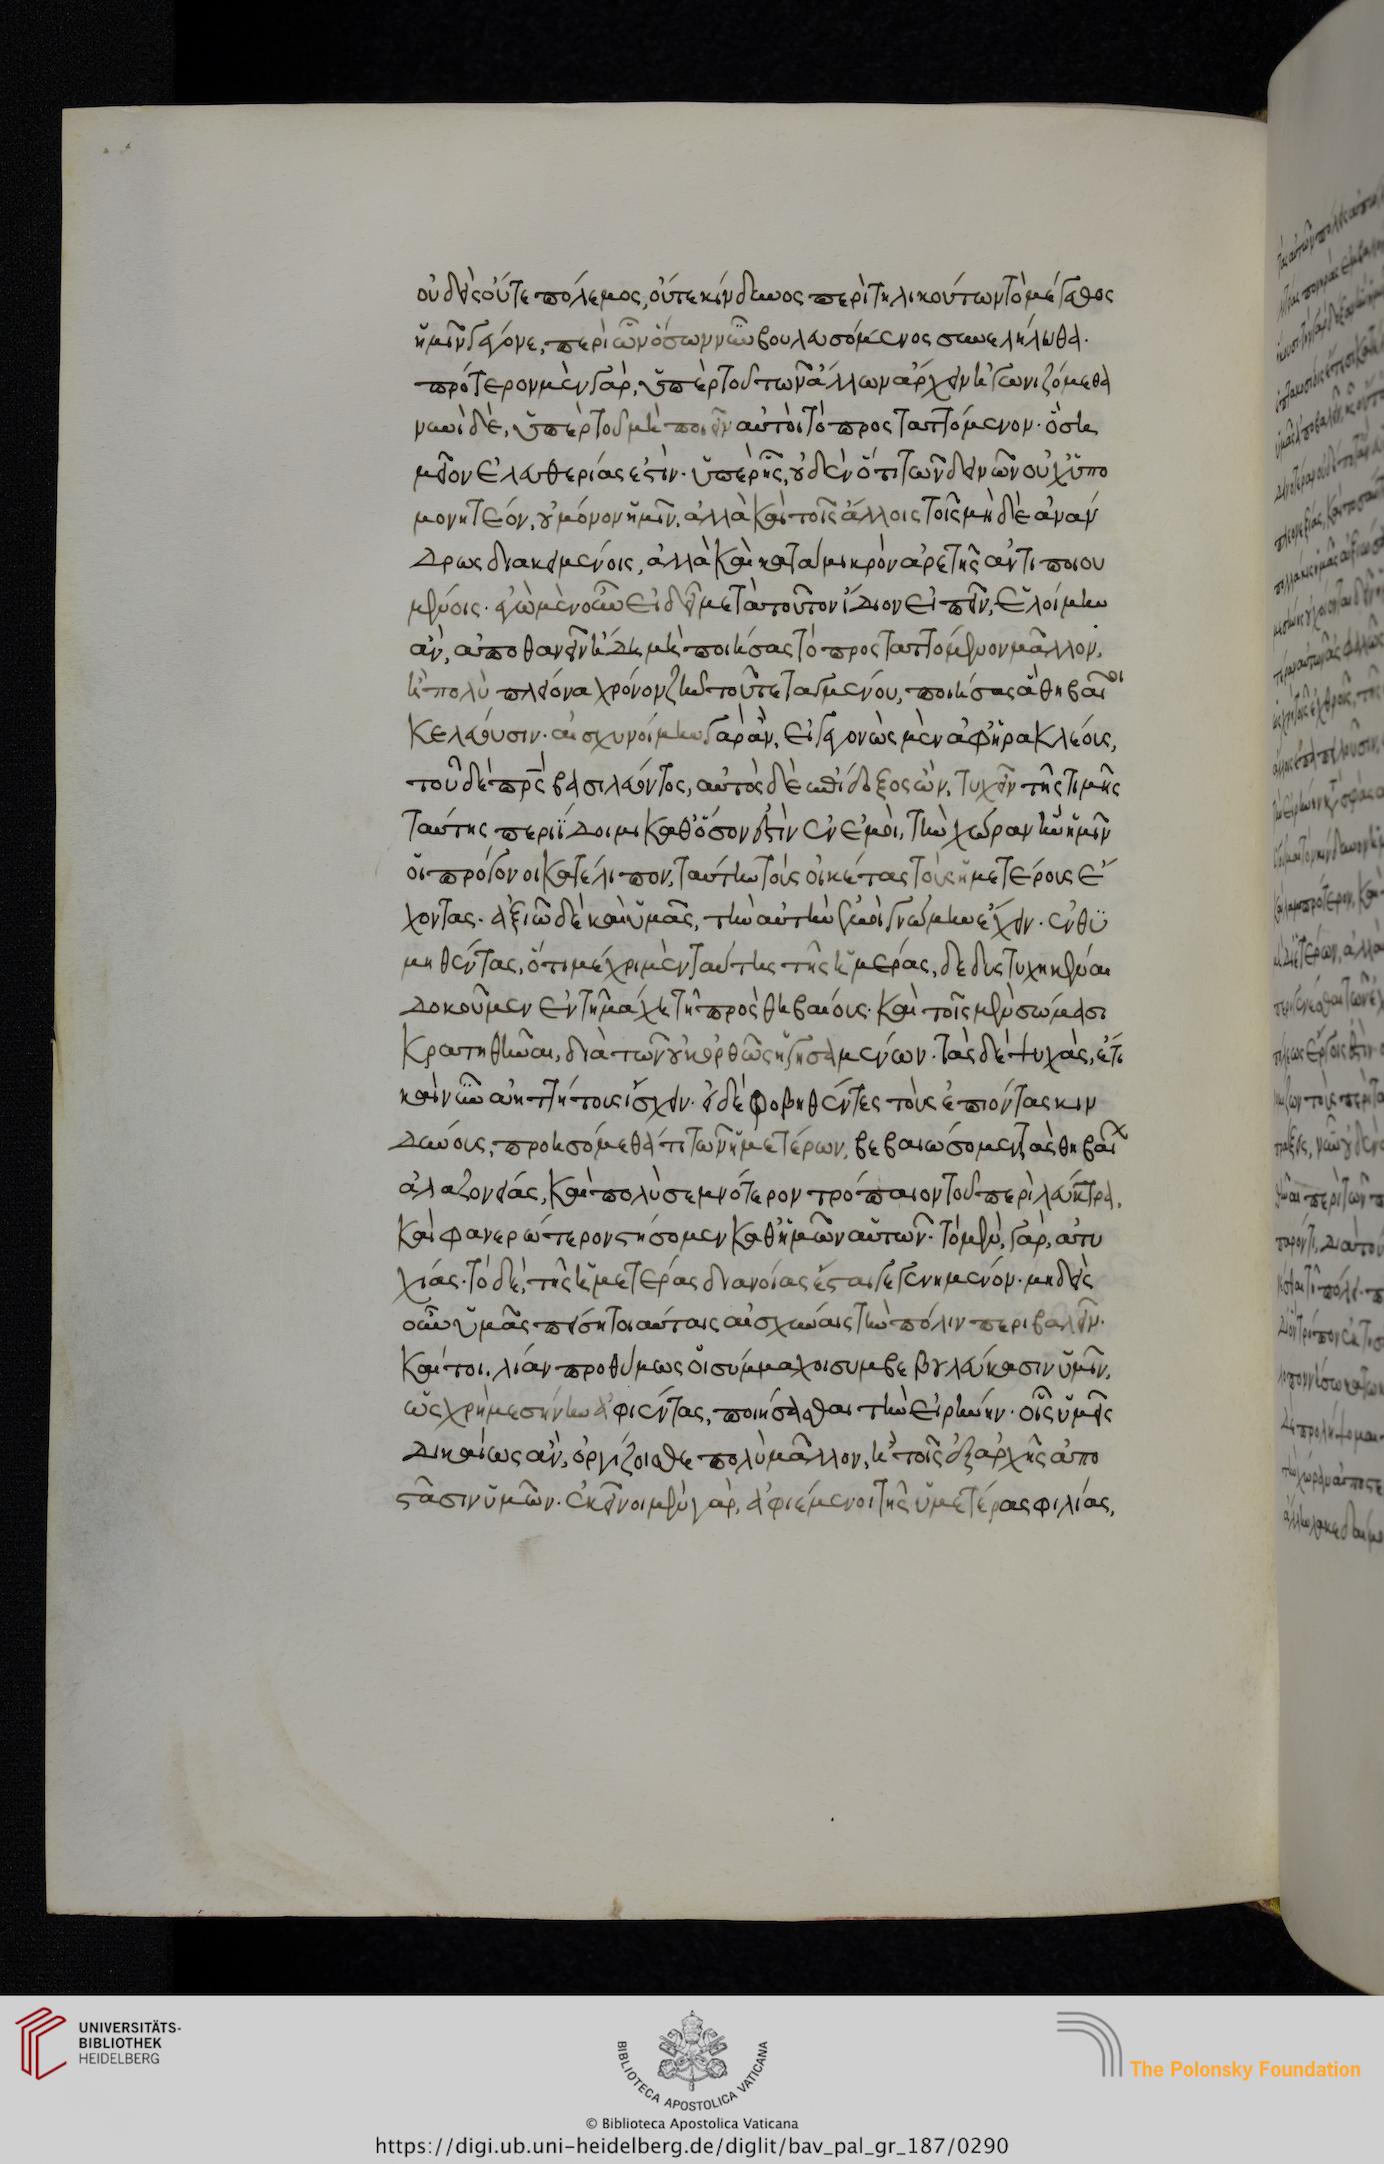 οὐδεὶς οὔτε πόλεμος, οὔτε κίνδυνος περὶ τηλικούτων τὸ μέγεθος
ἡμῖν γέγονε, περὶ ὧν ὅσων νῦν βουλευσόμενος συνελήλυθα.
πρότερον μὲν γὰρ, ὑπὲρ τοῦ τῶν ἄλλων ἄρχειν ἠγωνιζόμεθα
νυνὶ δὲ, ὑπὲρ τοῦ μὴ ποιεῖν αὐτοὶ τὸ προσταττόμενον. ὃ ση
μεῖον ἐλευθερίας ἐστίν. ὑπὲρ ἧς, οὐδὲν ὅτι τῶν δεινῶν οὐχ ὑπο
μονητέον, οὐ μόνον ἡμῖν, ἀλλὰ καὶ τοῖς ἄλλοις τοῖς μὴ δὲ ἀνάν
δρως διακειμένοις, ἀλλὰ καὶ κατὰ μικρὸν ἀρετῆς ἀντιποιου
μένοις. ἐγὼ μὲν οὖν εἰ δεῖ με τἀποῦτον ἴδιον εἰπεῖν, ἑλοίμην
ἂν, ἀποθανεῖν ἤδη μὴ ποιήσας τὸ προσταττόμενον μᾶλλον,
ἢ πολὺ πλείονα χρόνον ζῆν τοῦ τεταγμένου, ποιήσας ἃ θηβαῖοι
κελεύουσιν. αἰσχυνοίμην γὰρ ἂν, εἰ γεγονὼς μὲν ἀφ ἡρακλέους,
τοῦ δὲ πρς βασιλεύοντος, αὐτὸς δὲ ἐπίδοξος ὢν, τυχεῖν τῆς τιμῆς
ταύτης περιΐδοιμι καθ ὅσον ἐστὶν ἐν ἐμοὶ, τὴν χώραν ἣν ἡμῖν
οἱ πρόγονοι κατέλιπον, ταύτην τοὺς οἰκέτας τοὺς ἡμετέρους ἔ
χοντας. ἀξιῶ δὲ καὶ ὑμᾶς, τὴν αὐτὴν ἐμοὶ γνώμην ἔχειν. ἐνθυ
μηθέντας, ὅτι μέχρι μὲν ταύτης τῆς ἡμέρας, δεδυστυχηκέναι
δοκοῦμεν ἐν τῇ μάχῃ τῇ πρὸς θηβαίους. καὶ τοῖς μὲν σώμασι
κρατηθῆναι, διὰ τῶν οὐκ ὀρθῶς ἡγησαμένων. τὰς δὲ ψυχὰς, ἔτι
καὶ νῦν ἀηττήτους ἴσχειν. εἰ δὲ φοβηθέντες τοὺς ἐπιόντας κιν
δύνους, προησόμεθά τι τῶν ἡμετέρων, βεβαιώσομεν τὰς θηβαί
ἀλαζονείας, καὶ πολὺ σεμνότερον τρόπαιον τοῦ περὶ λεύκτρα,
καὶ φανερώτερον στήσομεν καθ ἡμῶν αὐτῶν. τὸ μὲν, γὰρ, ἀτυ
χίας. τὸ δὲ, τῆς ἡμετέρας διανοίας ἔσται γεγενημένον. μηδεὶς
οὖν ὑμᾶς πείσῃ τοιαύταις αἰσχύναις τὴν πόλιν περιβαλεῖν.
καί τοι. λίαν προθύμως οἱ σύμμαχοι συμβεβουλεύκασιν ὑμῖν,
ὡς χρὴ μεσήνην ἀφιέντας, ποιήσασθαι τὴν εἰρήνην. οἷς ὑμεῖς
δικαίως ἂν, ὀργίζοισθε πολὺ μᾶλλον, ἢ τοῖς ἐξ ἀρχῆς ἀπο
στᾶσιν ὑμῶν. ἐκεῖνοι μὲν γὰρ, ἀφιέμενοι τῆς ὑμετέρας φιλίας,
UNIVERSITÄTS-
BIBLIOTHEK
HEIDELBERG
BIBLIOTECA APOSTOLICA VATICANA
The Polonsky Foundation
© Biblioteca Apostolica Vaticana
https://digi.ub.uni-heidelberg.de/diglit/bav_pal_gr_187/0290